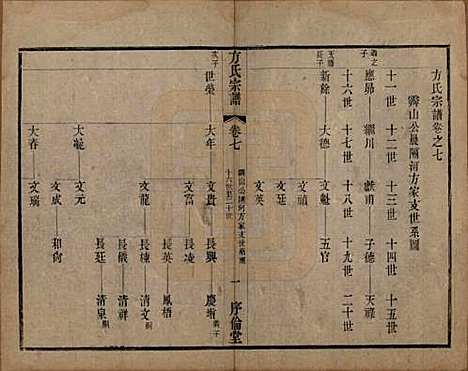 方氏宗譜卷之七
霽山公晨隔河方家支世系圖
十一世 十二世 十三世 十四世 十五世
應昴 纘川 獻甫 子德 天祿
十六世 十七世 十八世 十九世 二十世
長子 新餘 大德 文魁 五官
文頑
文廷
文英
方氏宗譜 卷七
十六世至二十世
一 序倫堂
次子 世榮 大年 文貴 長興 慶增
文富 長凌
文龍 長英 鳳梧
長棟 清文
長儀 清祥
長廷 清泉
大龍 文元
文成 和尚
大春 文瑞